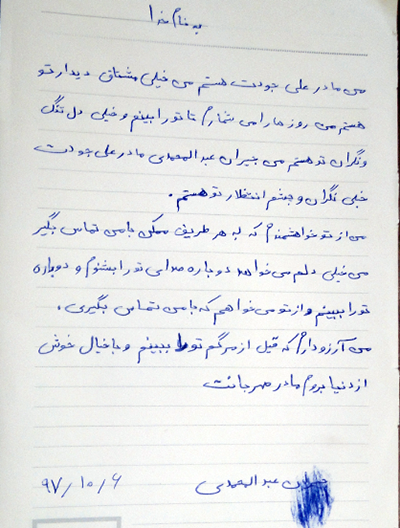 به نام خدا
من مادر علی جودت هستم من خیلی مشتاق دیدار تو
هستم من روزها را می شمارم تا تو را ببینم و خیلی دل تنگ
و نگران تو هستم من جیران عبدالمحمدی مادر علی جودت
خیلی نگران و چشم انتظار تو هستم.
من از تو خواهشمندم که به هر طریف ممکن بامن تماس بگیر
من خیلی دلم می خواهد دوباره صدای تو را بشنوم و دوباره
تو را ببینم و از تو می خواهم که با من تماس بگیری.
من آرزو دارم که قبل از مرگم تو را ببینم و با خیال خوش
از دنیا بروم مادر مهربانت
عبدالمحمدی
۹۷/۱۰/۶